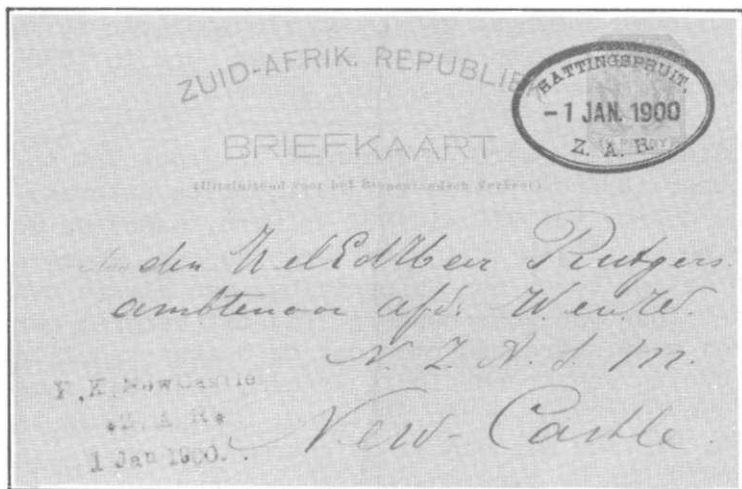 ZUID-AFRIK. REPUBLIEK
HATTINGSPRUIT.
-1 JAN. 1900
Z. A. R.
BRIEFKAART
(Uitsluitend voor het Binnenlandsch Verkeer)
Aan den WelEdHeer Rutgers.
ambtenaar afd. W en W.
N. Z. A. S. M.
New-Castle.
P.K. NewCastle
*Z. A R*
1 Jan 1900.